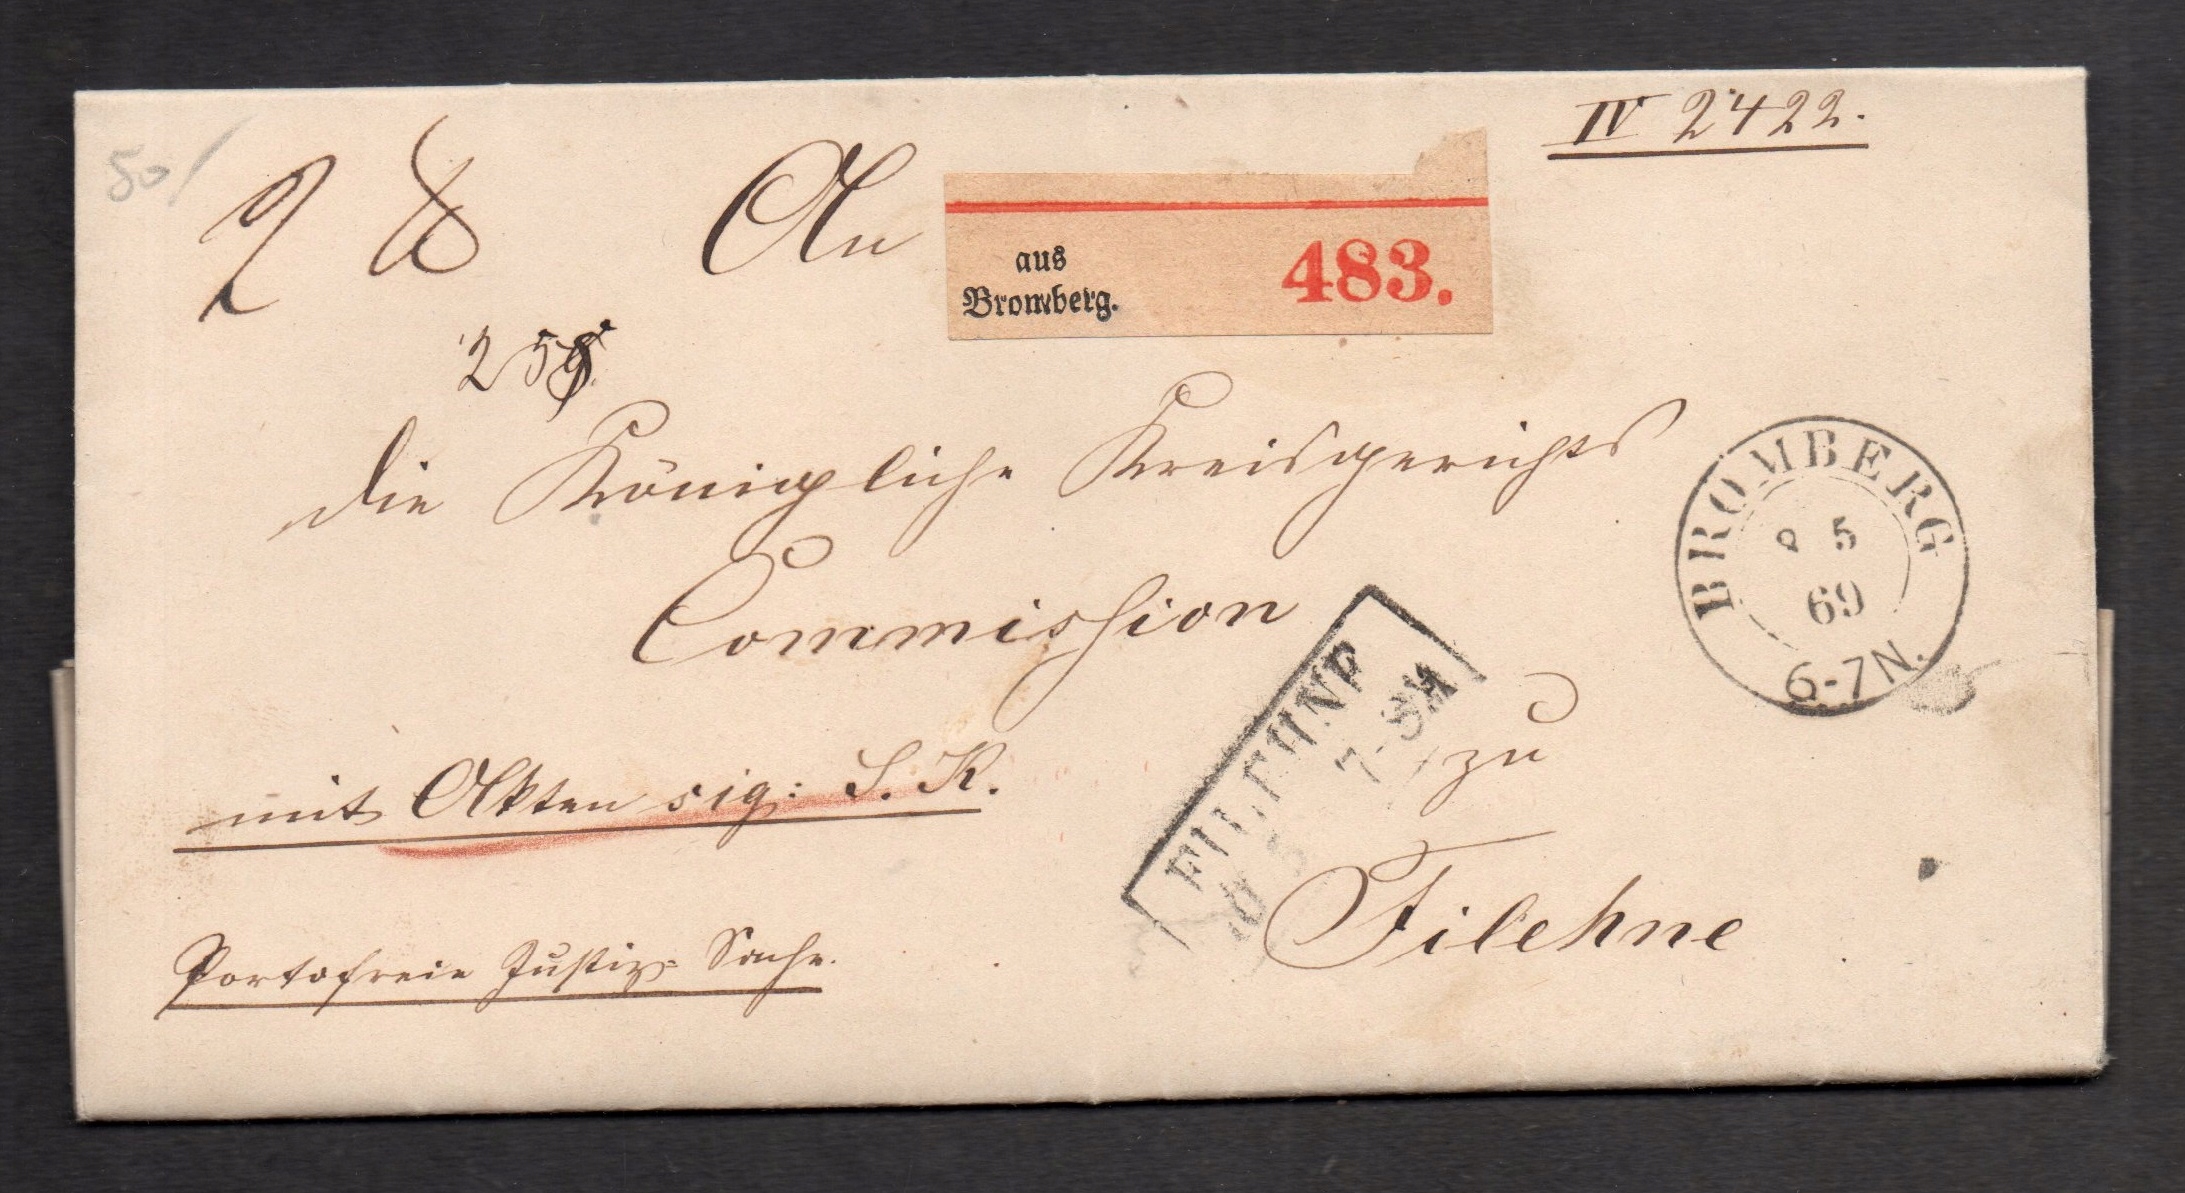 IV 2422.
50
2
An
aus
Bromberg.
483.
die Königliche Kreisgerichts
Commission
BROMBERG
5
69
6-7N.
FILEHNE
10 5 7-8M
zu
Filehne
mit Akten sig: S. R.
Portofreie Justiz-Sache.